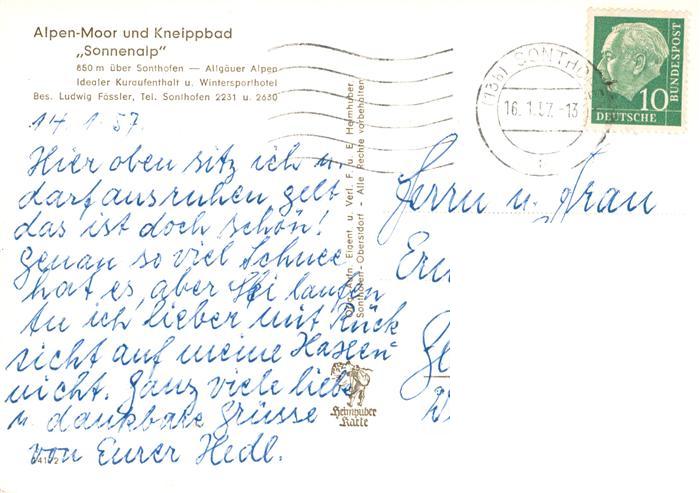 Alpen-Moor und Kneippbad
„Sonnenalp"
850 m über Sonthofen — Allgäuer Alpen
Idealer Kuraufenthalt u. Wintersporthotel
Bes. Ludwig Fässler, Tel. Sonthofen 2231 u. 2630
14.1.57.
Hier oben sitz ich u.
darf ausruhen, gelt
das ist doch schön!
Genau so viel Schnee
hat es, aber Ski laufen
tu ich lieber mit Rück
sicht auf meine Haxen
nicht. Ganz viele liebe
u. dankbare Grüsse
von Eurer Hedl.
Orig. Aufn. Eigent. u. Verl. F. u. E. Heimhuber
Sonthofen-Obersdorf - Alle Rechte vorbehalten
Heimhuber
Karte
(13b) SONTHO
16.1.57.-13
DEUTSCHE
BUNDESPOST
10
Herrn u. Frau